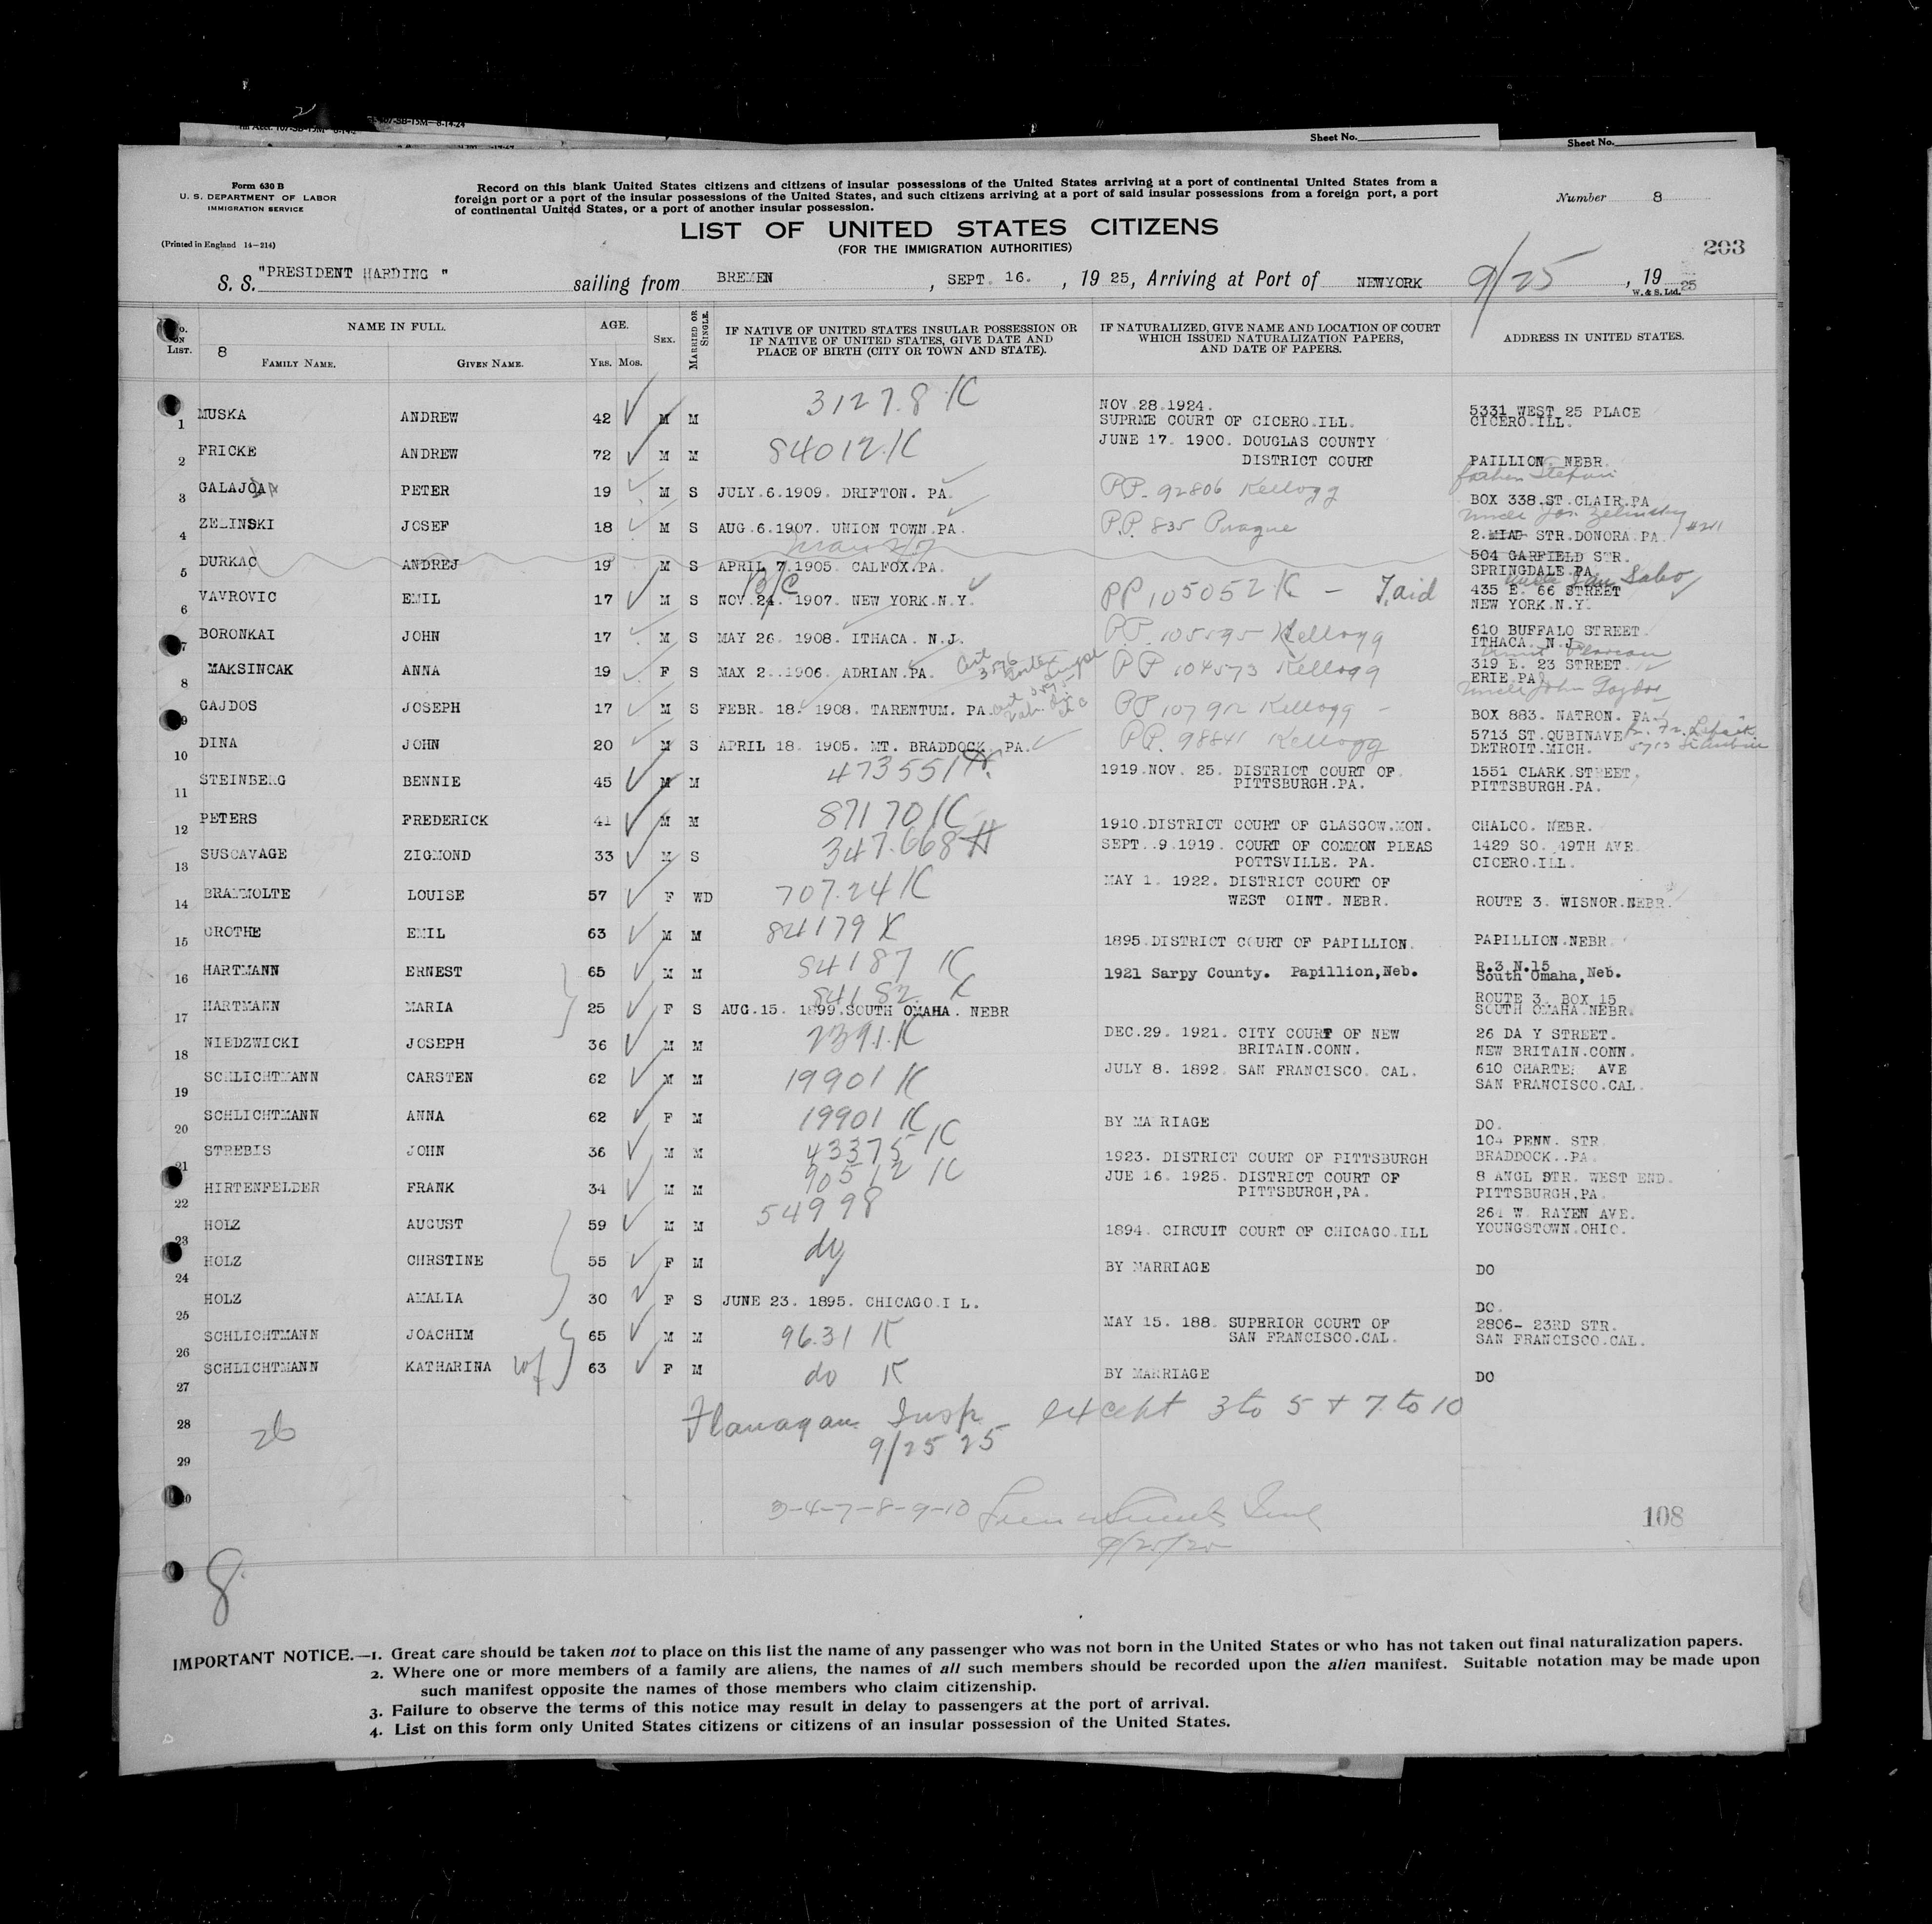 Sheet No.
Sheet No.
Form 630 B
U. S. DEPARTMENT OF LABOR
IMMIGRATION SERVICE
(Printed in England 14-214)
Record on this blank United States citizens and citizens of insular possessions of the United States arriving at a port of continental United States from a
foreign port or a port of the insular possessions of the United States, and such citizens arriving at a port of said insular possessions from a foreign port, a port
of continental United States, or a port of another insular possession.
Number 8
LIST OF UNITED STATES CITIZENS
(FOR THE IMMIGRATION AUTHORITIES)
203
S. S. "PRESIDENT HARDING " sailing from BREMEN, SEPT. 16. , 19 25, Arriving at Port of NEWYORK 9/25, 19 25
W. & S. Ltd.
No. ON LIST. NAME IN FULL. AGE. SEX. MARRIED OR SINGLE. IF NATIVE OF UNITED STATES INSULAR POSSESSION OR IF NATIVE OF UNITED STATES, GIVE DATE AND PLACE OF BIRTH (CITY OR TOWN AND STATE). IF NATURALIZED, GIVE NAME AND LOCATION OF COURT WHICH ISSUED NATURALIZATION PAPERS, AND DATE OF PAPERS. ADDRESS IN UNITED STATES.
8 FAMILY NAME. GIVEN NAME. YRS. MOS.
1 MUSKA ANDREW 42 M M 3127.8 K NOV.28.1924. SUPRME COURT OF CICERO.ILL. 5331 WEST 25 PLACE CICERO.ILL.
2 FRICKE ANDREW 72 M M 84012 K JUNE 17. 1900. DOUGLAS COUNTY DISTRICT COURT PAILLION. NEBR.
3 GALAJOA PETER 19 M S JULY.6.1909. DRIFTON. PA. PP. 92806 Kellogg BOX 338.ST.CLAIR.PA
4 ZELINSKI JOSEF 18 M S AUG.6.1907. UNION TOWN.PA. P.P. 835 Prague uncle Jos. Zelinsky 2. STR.DONORA.PA. #211
5 DURKAC ANDREJ 19 M S APRIL 7.1905. CALFOX.PA. 504 GARFIELD STR. SPRINGDALE.PA.
6 VAVROVIC EMIL 17 M S B/C NOV.24. 1907. NEW YORK.N.Y. PP 105052 K - uncle Jan Sabo 435 E. 66 STREET NEW YORK.N.Y.
7 BORONKAI JOHN 17 M S MAY 26. 1908. ITHACA. N.J. PP. Kellogg 610 BUFFALO STREET. ITHACA. N.J.
8 MAKSINCAK ANNA 19 F S MAX 2..1906. ADRIAN.PA. PP 104573 Kellogg 319 E. 23 STREET. ERIE.PA.
9 GAJDOS JOSEPH 17 M S FEBR. 18. 1908. TARENTUM. PA. PP 107912 Kellogg - Uncle John Gajdos BOX 883. NATRON. PA.
10 DINA JOHN 20 M S APRIL 18. 1905. MT. BRADDOCK. PA. PP. 98841 Kellogg 5713 ST.QUBINAVE DETROIT.MICH.
11 STEINBERG BENNIE 45 M M 473551 1919.NOV. 25. DISTRICT COURT OF. PITTSBURGH.PA. 1551 CLARK.STREET. PITTSBURGH.PA.
12 PETERS FREDERICK 41 M M 87170 K 1910.DISTRICT COURT OF GLASGOW.MON. CHALCO. NEBR.
13 SUSCAVAGE ZIGMOND 33 M S 347.668 H SEPT..9.1919. COURT OF COMMON PLEAS POTTSVILLE. PA. 1429 SO. 49TH AVE. CICERO.ILL.
14 BRAMMOLTE LOUISE 57 F WD 707.24 K MAY 1. 1922. DISTRICT COURT OF WEST OINT. NEBR. ROUTE 3. WISNOR.NEBR.
15 GROTHE EMIL 63 M M 84179 K 1895.DISTRICT COURT OF PAPILLION. PAPILLION.NEBR.
16 HARTMANN ERNEST 65 M M 84187 K 1921 Sarpy County. Papillion,Neb. R.3 N.15 South Omaha, Neb.
17 HARTMANN MARIA 25 F S 84182. K AUG.15. 1899.SOUTH OMAHA. NEBR ROUTE 3. BOX 15 SOUTH OMAHA.NEBR.
18 NIEDZWICKI JOSEPH 36 M M 2391.K DEC.29. 1921. CITY COURT OF NEW BRITAIN.CONN. 26 DA Y STREET. NEW BRITAIN.CONN.
19 SCHLICHTMANN CARSTEN 62 M M 19901 K JULY 8. 1892. SAN FRANCISCO. CAL. 610 CHARTER AVE SAN FRANCISCO.CAL.
20 SCHLICHTMANN ANNA 62 F M 19901 K BY MA RIAGE DO.
21 STREBIS JOHN 36 M M 43375 K 1923. DISTRICT COURT OF PITTSBURGH 104 PENN. STR. BRADDOCK..PA.
22 HIRTENFELDER FRANK 34 M M 90512 K JUE 16. 1925. DISTRICT COURT OF PITTSBURGH,PA. 8 ANGL STR. WEST END. PITTSBURGH,PA.
23 HOLZ AUGUST 59 M M 54998 1894. CIRCUIT COURT OF CHICAGO.ILL 261 W. RAYEN AVE. YOUNGSTOWN.OHIO.
24 HOLZ CHRSTINE 55 F M do BY MARRIAGE DO
25 HOLZ AMALIA 30 F S JUNE 23. 1895. CHICAGO.I L. DO.
26 SCHLICHTMANN JOACHIM 65 M M 96.31 K MAY 15. 188. SUPERIOR COURT OF SAN FRANCISCO.CAL. 2806- 23RD STR. SAN FRANCISCO.CAL.
27 SCHLICHTMANN KATHARINA wf 63 F M do K BY MARRIAGE DO
28 Flanagan Insp - except 3 to 5 + 7 to 10
26 9/25 25
29
30 3-4-7-8-9-10
9/25/25
108
8.
IMPORTANT NOTICE.—1. Great care should be taken not to place on this list the name of any passenger who was not born in the United States or who has not taken out final naturalization papers.
2. Where one or more members of a family are aliens, the names of all such members should be recorded upon the alien manifest. Suitable notation may be made upon
such manifest opposite the names of those members who claim citizenship.
3. Failure to observe the terms of this notice may result in delay to passengers at the port of arrival.
4. List on this form only United States citizens or citizens of an insular possession of the United States.